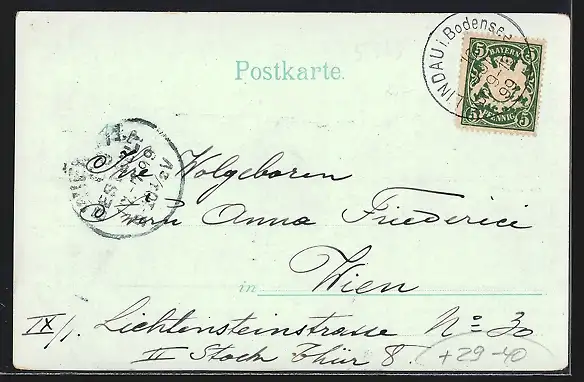 LINDAU i. Bodensee
5 BAYERN 5
5 PFENNIG 5
Postkarte.
Ihre Wolgeboren
Frau Anna Friederici
in Wien
IX/1. Lichtensteinstrasse No 30
II Stock Thür 8.
+29-40